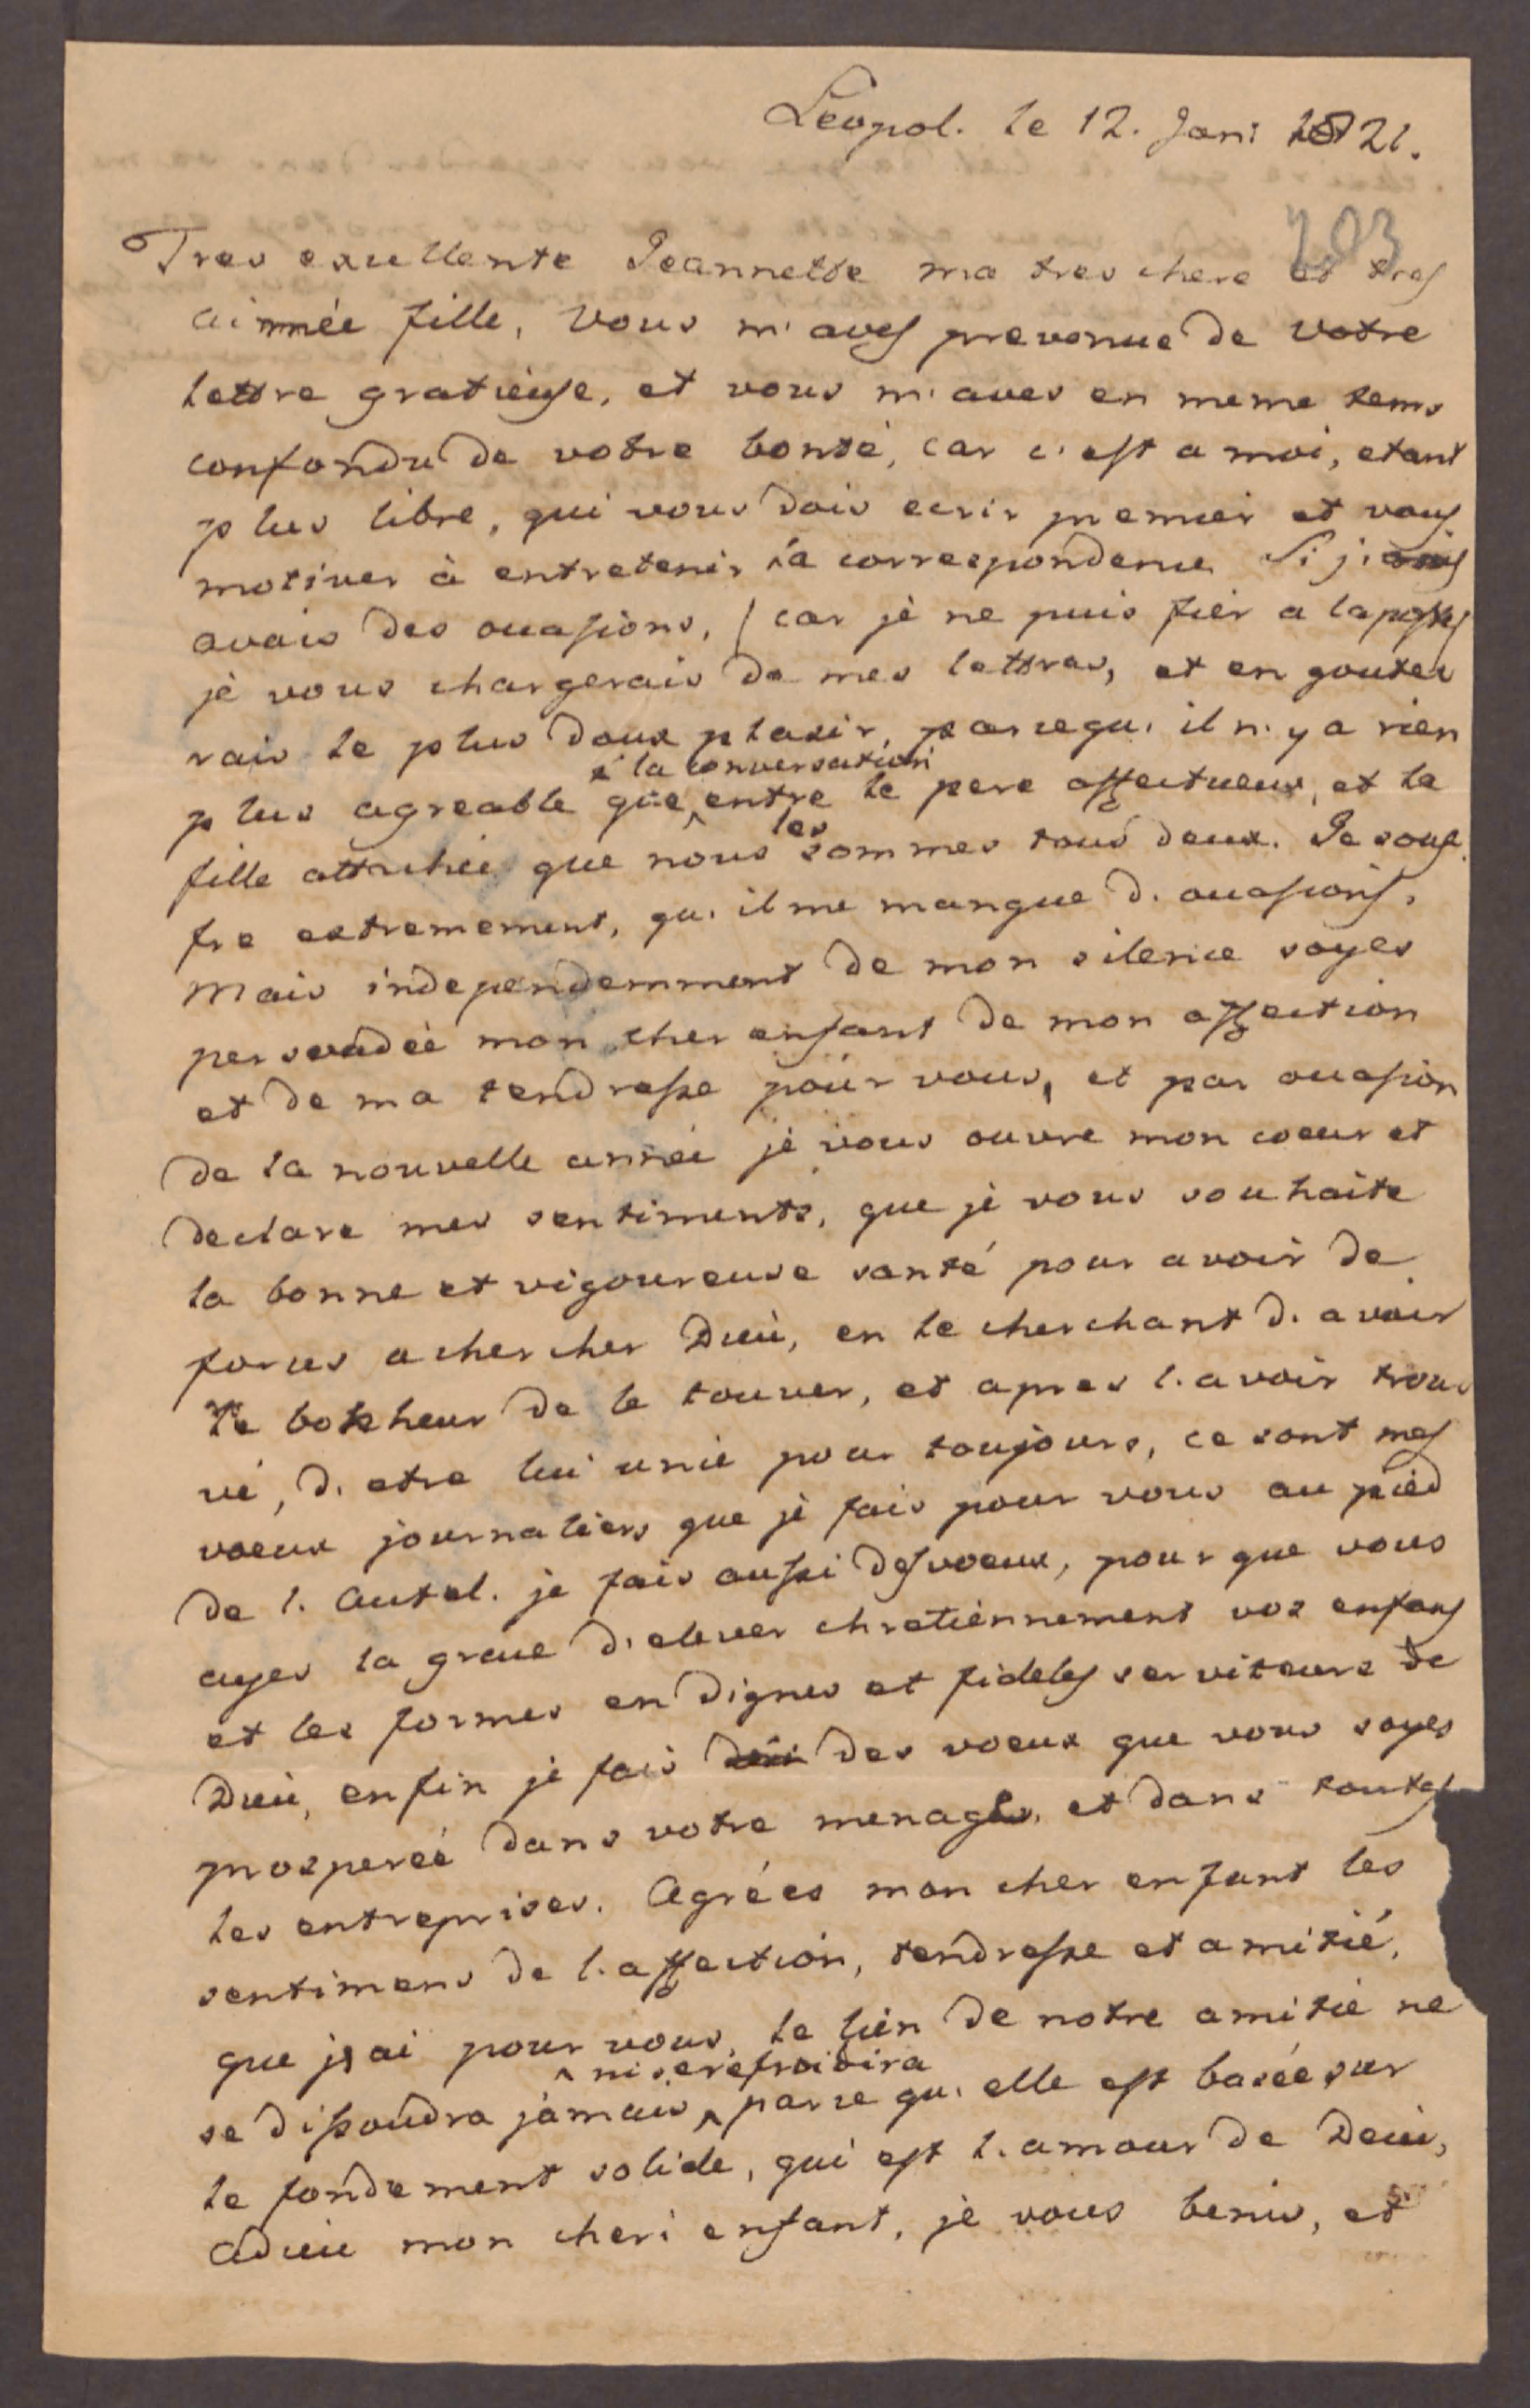 Leopol. le 12. Jani 1821.
203
Tres excellente Jeannette ma tres chere et tres
aimnée fille, Vous m'aves prevenue de votre
lettre gratieuse, et vous m'aves en meme tems
confondu de votre bonté, car c'est a moi, etant
plus libre, qui vous dois ecrir premier et vous
motiver à entretenir la correspondence. Si j'
avais des occasions, / car jè ne puis fier a la poste/
jè vous chargerais de mes lettres, et en goute
rais le plus doux plasir, parcequ' il n'y a rien
à la conversation
plus agreable que entre le pere affectueux, et la
les
fille attachée que nous sommes tous deux. Je souf
fre extremement, qu' il me manque d' occasions,
Mais independemment de mon silence soyes
persvadée mon cher enfant de mon affection
et de ma tendresse pour vous, et par occasion
de la nouvelle année jè vous ouvre mon coeur et
declare mes sentiments, que jè vous souhaite
la bonne et vigoureuse santé pour avoir de
forces a chercher Dieu, en le cherchant d' avoir
le bonheur de le touver, et apres l' avoir trou
vé, d' etre lui unie pour toujours, ce sont mes
voeux journaliers que jè fais pour vous au pied
de l' Autel. je fais aussi des voeux, pour que vous
ayes la grace d' elever chretiennement vos enfans
et les formes en dignes et fideles serviteurs de
Dieu, enfin jè fais des voeux que vous soyes
prosperée dans votre menage, et dans toutes
les entreprises. Agrées mon cher enfant les
sentimens de l' affection, tendresse et amitié,
que j'ai pour vous, le lien de notre amitié ne
ni se refroidira
se dissoudra jamais, parce qu' elle est basée sur
le fondement solide, qui est l' amour de Deiu,
adieu mon cheri enfant, jè vous benis, et